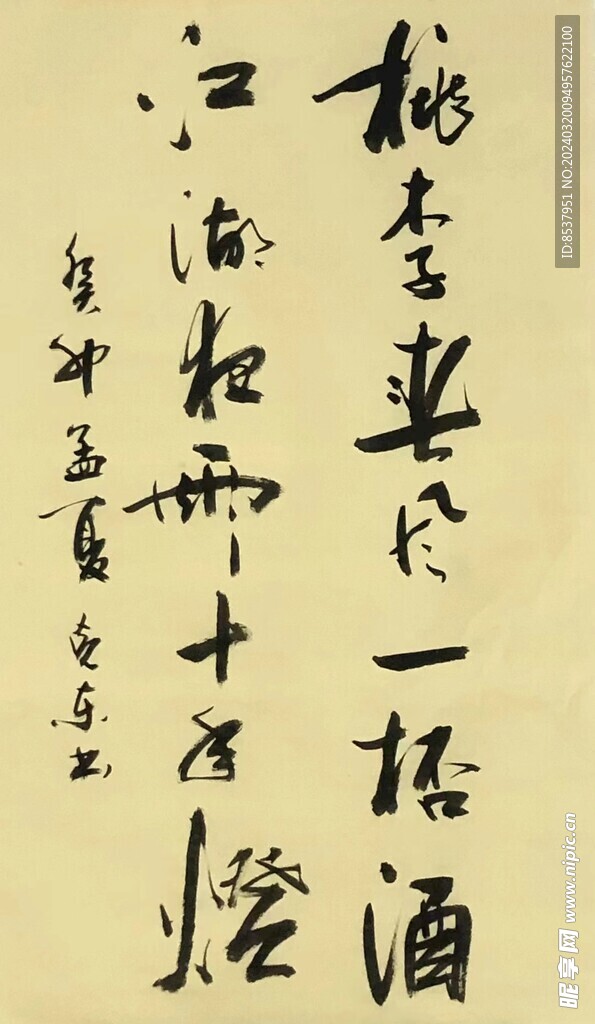 桃李春风一杯酒
江湖夜雨十年燈
癸卯孟夏 克东书
ID:8537951 NO:20240320094957622100
昵享网 www.nipic.cn